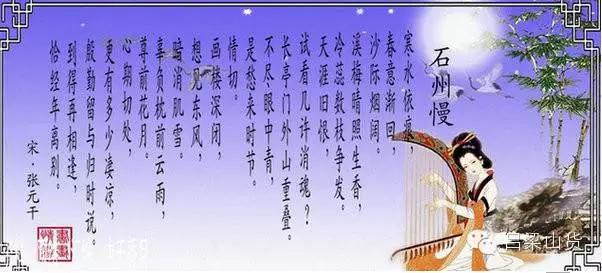 石州慢
寒水依痕，
春意渐回，
沙际烟阔。
溪梅晴照生香，
冷蕊数枝争发。
天涯旧恨，
试看几许消魂？
长亭门外山重叠。
不尽眼中青，
是愁来时节。
情切。
画楼深闭，
想见东风，
暗消肌雪。
辜负枕前云雨，
尊前花月。
心期切处，
更有多少凄凉，
殷勤留与归时说。
到得再相逢，
恰经年离别。
宋 张元干
吕梁山货